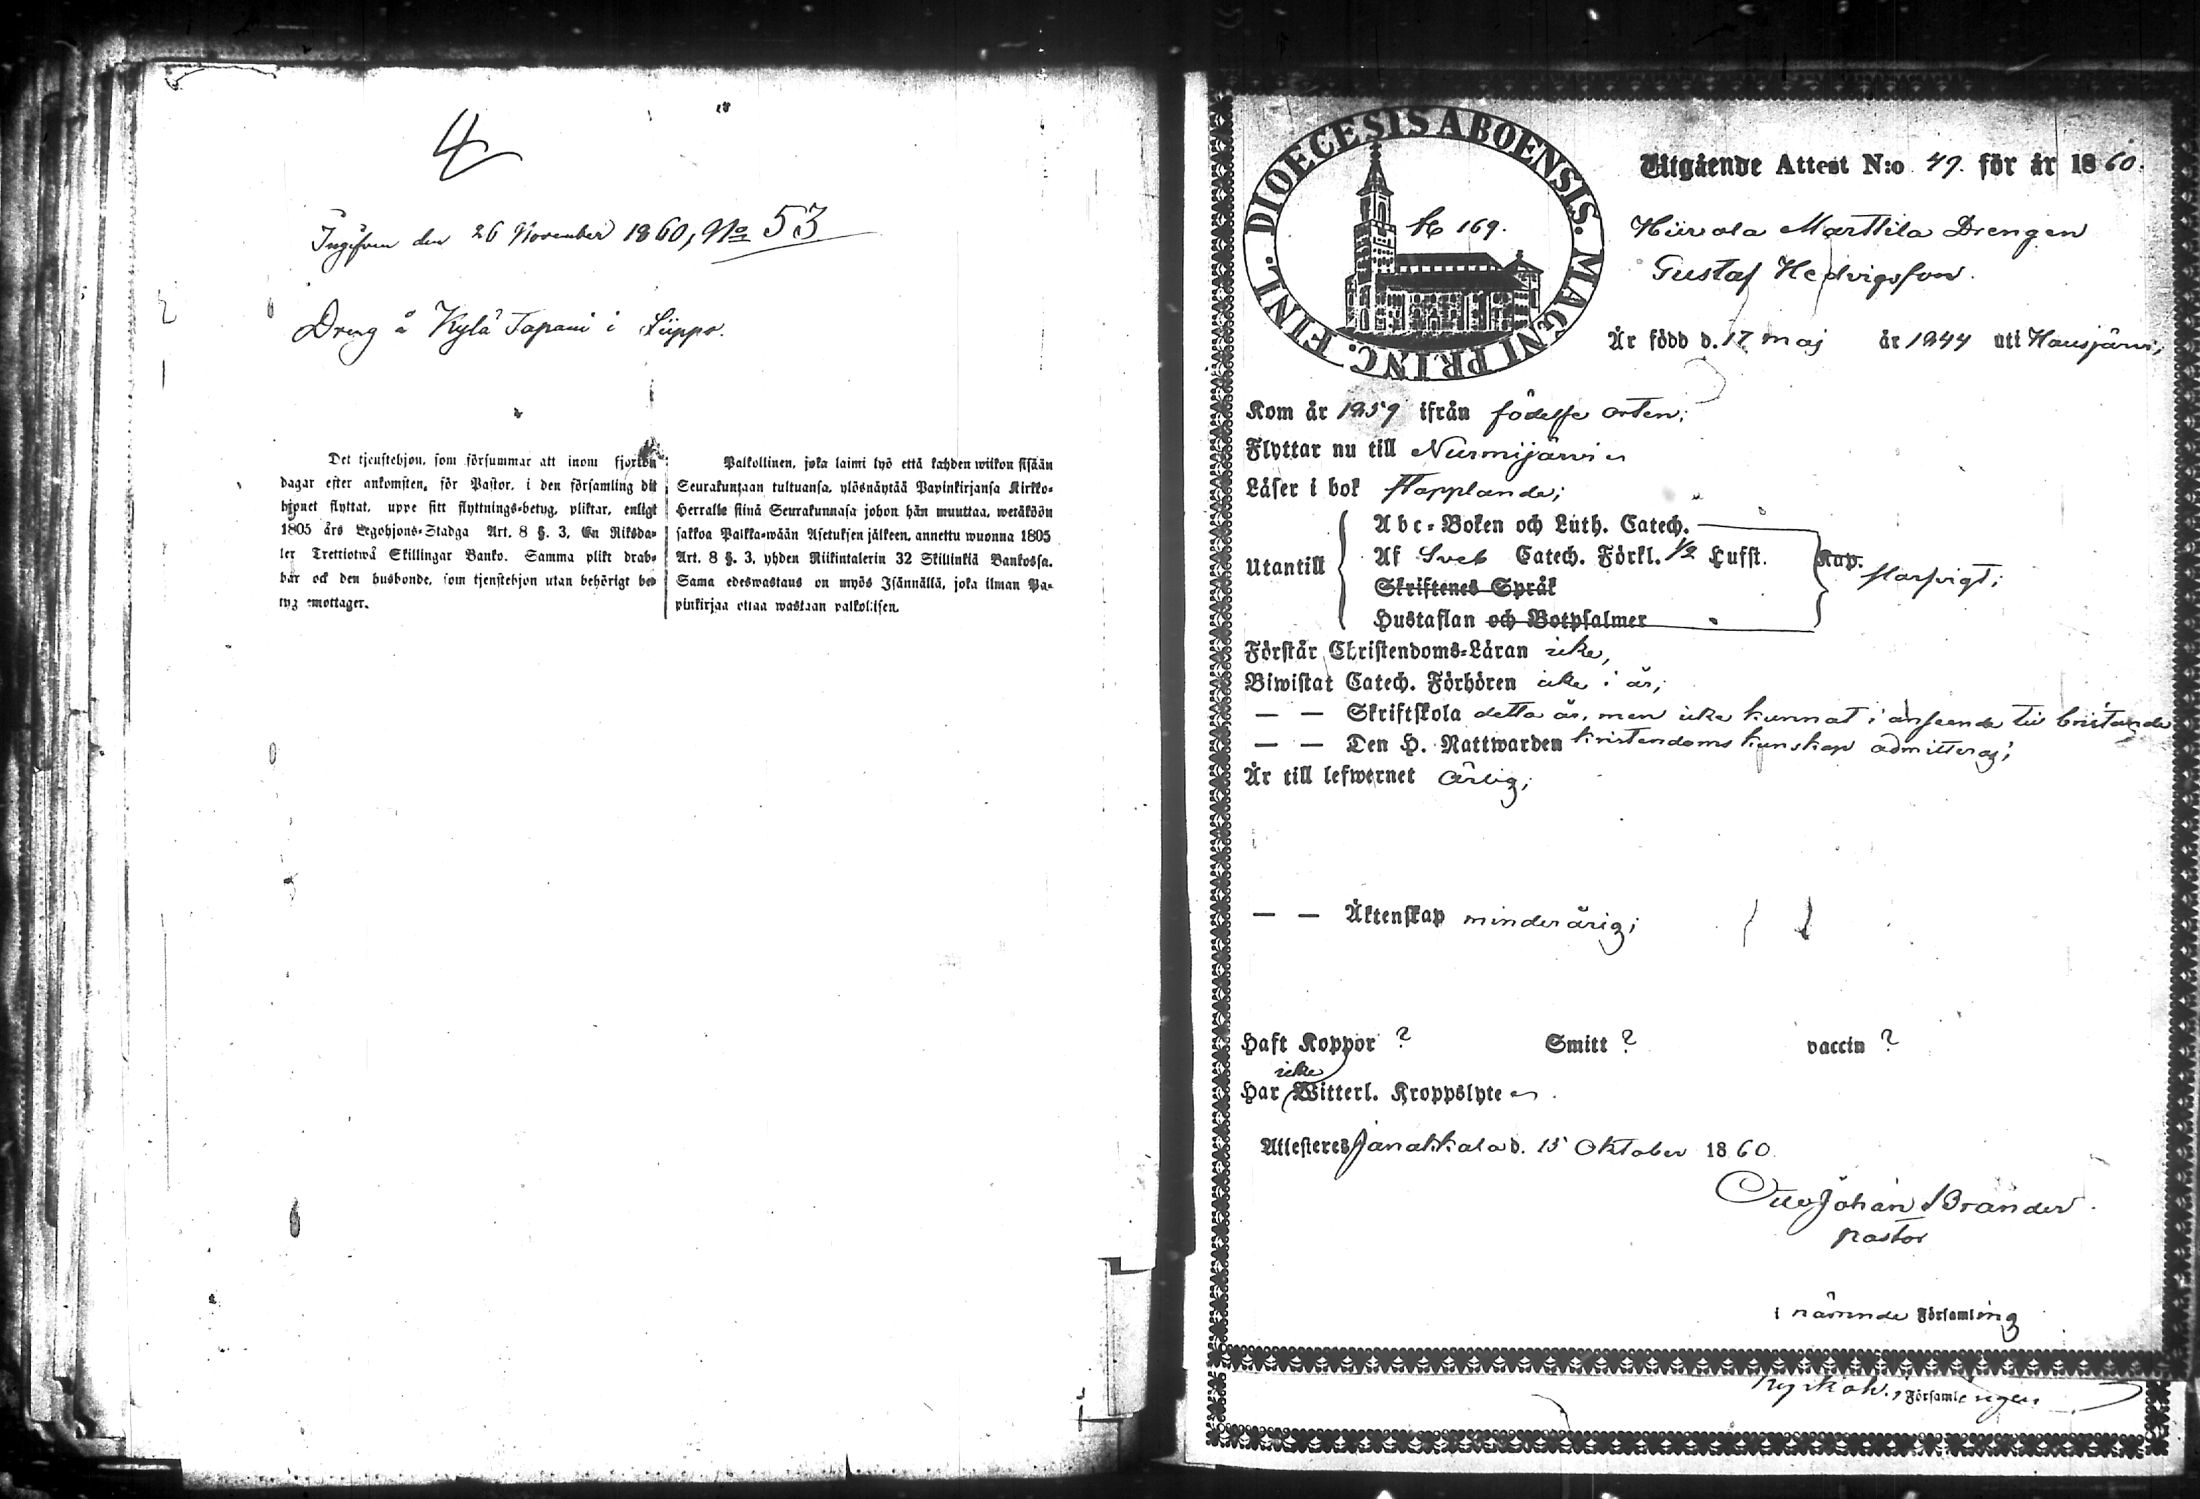 4
Ingifven den 26 November 1860, No 53
Dreng å Kylä Tapani i Siippo.
Det tjenstehjon, som försummar att inom fjorton
dagar efter ankomsten, för Pastor, i den församling dit
hjonet flyttat, uppe sitt flyttnings-betyg, pliktar, enligt
1805 års Legohjons-Stadga Art. 8 §. 3, En Riksda-
ler Trettiotwå Skillingar Banko. Samma plikt drab-
bar ock den husbonde, som tjenstehjon utan behörigt be-
tyg emottager.
Palkollinen, joka laimi lyö että kahden wiikon sisään
Seurakuntaan tultuansa, ylösnäytää Papinkirjansa Kirkko-
herralle siinä Seurakunnasa johon hän muuttaa, wetäköön
sakkoa Palkka-wään Asetuksen jälkeen, annettu wuonna 1805
Art. 8 §. 3, yhden Riikintalerin 32 Skillinkiä Bankossa.
Sama edeswastaus on myös Isännällä, joka ilman Pa-
pinkirjaa ottaa wastaan palkollisen.
DIOECESIS ABOENSIS. MAGNI PRINC. FINL.
169.
Utgående Attest N:o 47. för år 1860.
Hiivola Marttila Drengen
Gustaf Hedvigsson.
Är född d. 17 maj år 1844 uti Hausjärvi,
Kom år 1859 ifrån födelse orten;
Flyttar nu till Nurmijärvi
Läser i bok Hopplande;
Utantill
Abc-Boken och Luth. Catech.
Af Sveb Catech. Förkl. 1/2 Hufst. Kap.
Skriftenes Språk
Hustaflan och Botpsalmer
Förstår Christendoms-Läran icke,
Biwistat Catech. Förhören icke i år;
— — Skriftskola detta år, men icke kunnat i anseende till bristande
— — Den H. Nattwarden kristendoms kunskap admitteras;
Är till lefwernet ärlig;
— — Äktenskap minderårig;
Haft Koppor ? Smitt ? vaccin ?
icke
Har Witterl. Kroppslyte
Attesteres Janakkala d. 15 Oktober 1860
Otto Johan Brander.
pastor
i nämnde Församling
Kyrkoh. i Församlingen